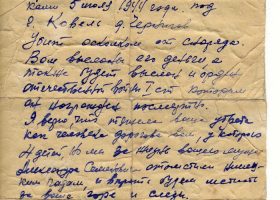 нами 5 июля 1944 года. под
г. Ковель д.
Убит осколком от снаряда.
Вам высланы его деньги а
также будет выслан и орден
отечественной войны I ст которым
он награжден посмертно.
Я верю, что тяжела ваша утрата
как человека дорогого вам, у которого
4 детей. Но мы за жизнь вашего мужа
Александра Семеновича отомстили
гадам и впредь будем мстить
за ваше горе и слезы.